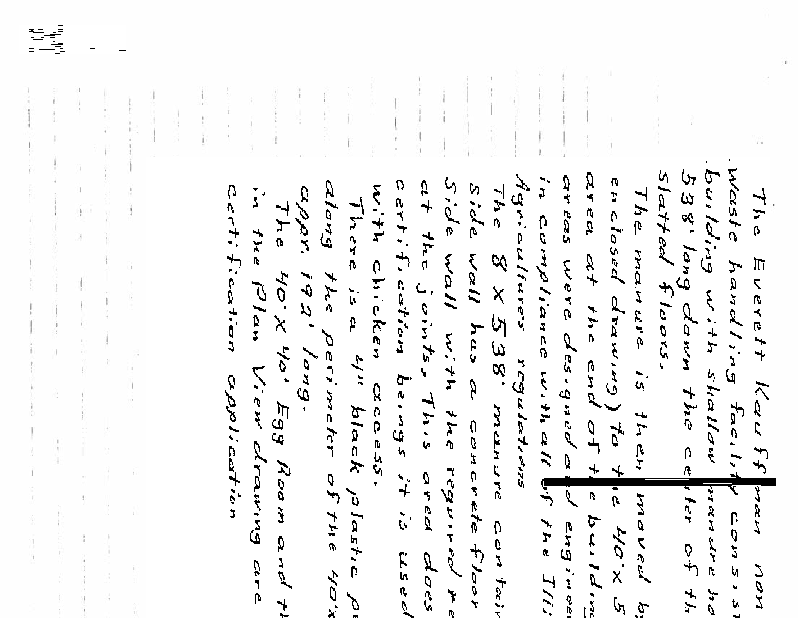 The Everett Kauffman non
Waste handling facility consist
building with shallow manure ho
538' long down the center of th
slatted floors.
The manure is then moved b
enclosed drawing) to the 40' x 5
area at the end of the building
areas were designed and enginee
in compliance with all of the Illi
Agricultures regulations
The 8 x 538' manure contain
side wall has a concrete floor
side wall with the required re
at the joints. This area does
certification beings it is used
with chicken access.
There is a 4" black plastic p
along the perimeter of the 40'x
appr. 192' long.
The 40' x 40' Egg Room and th
in the Plan View drawing are
certification application